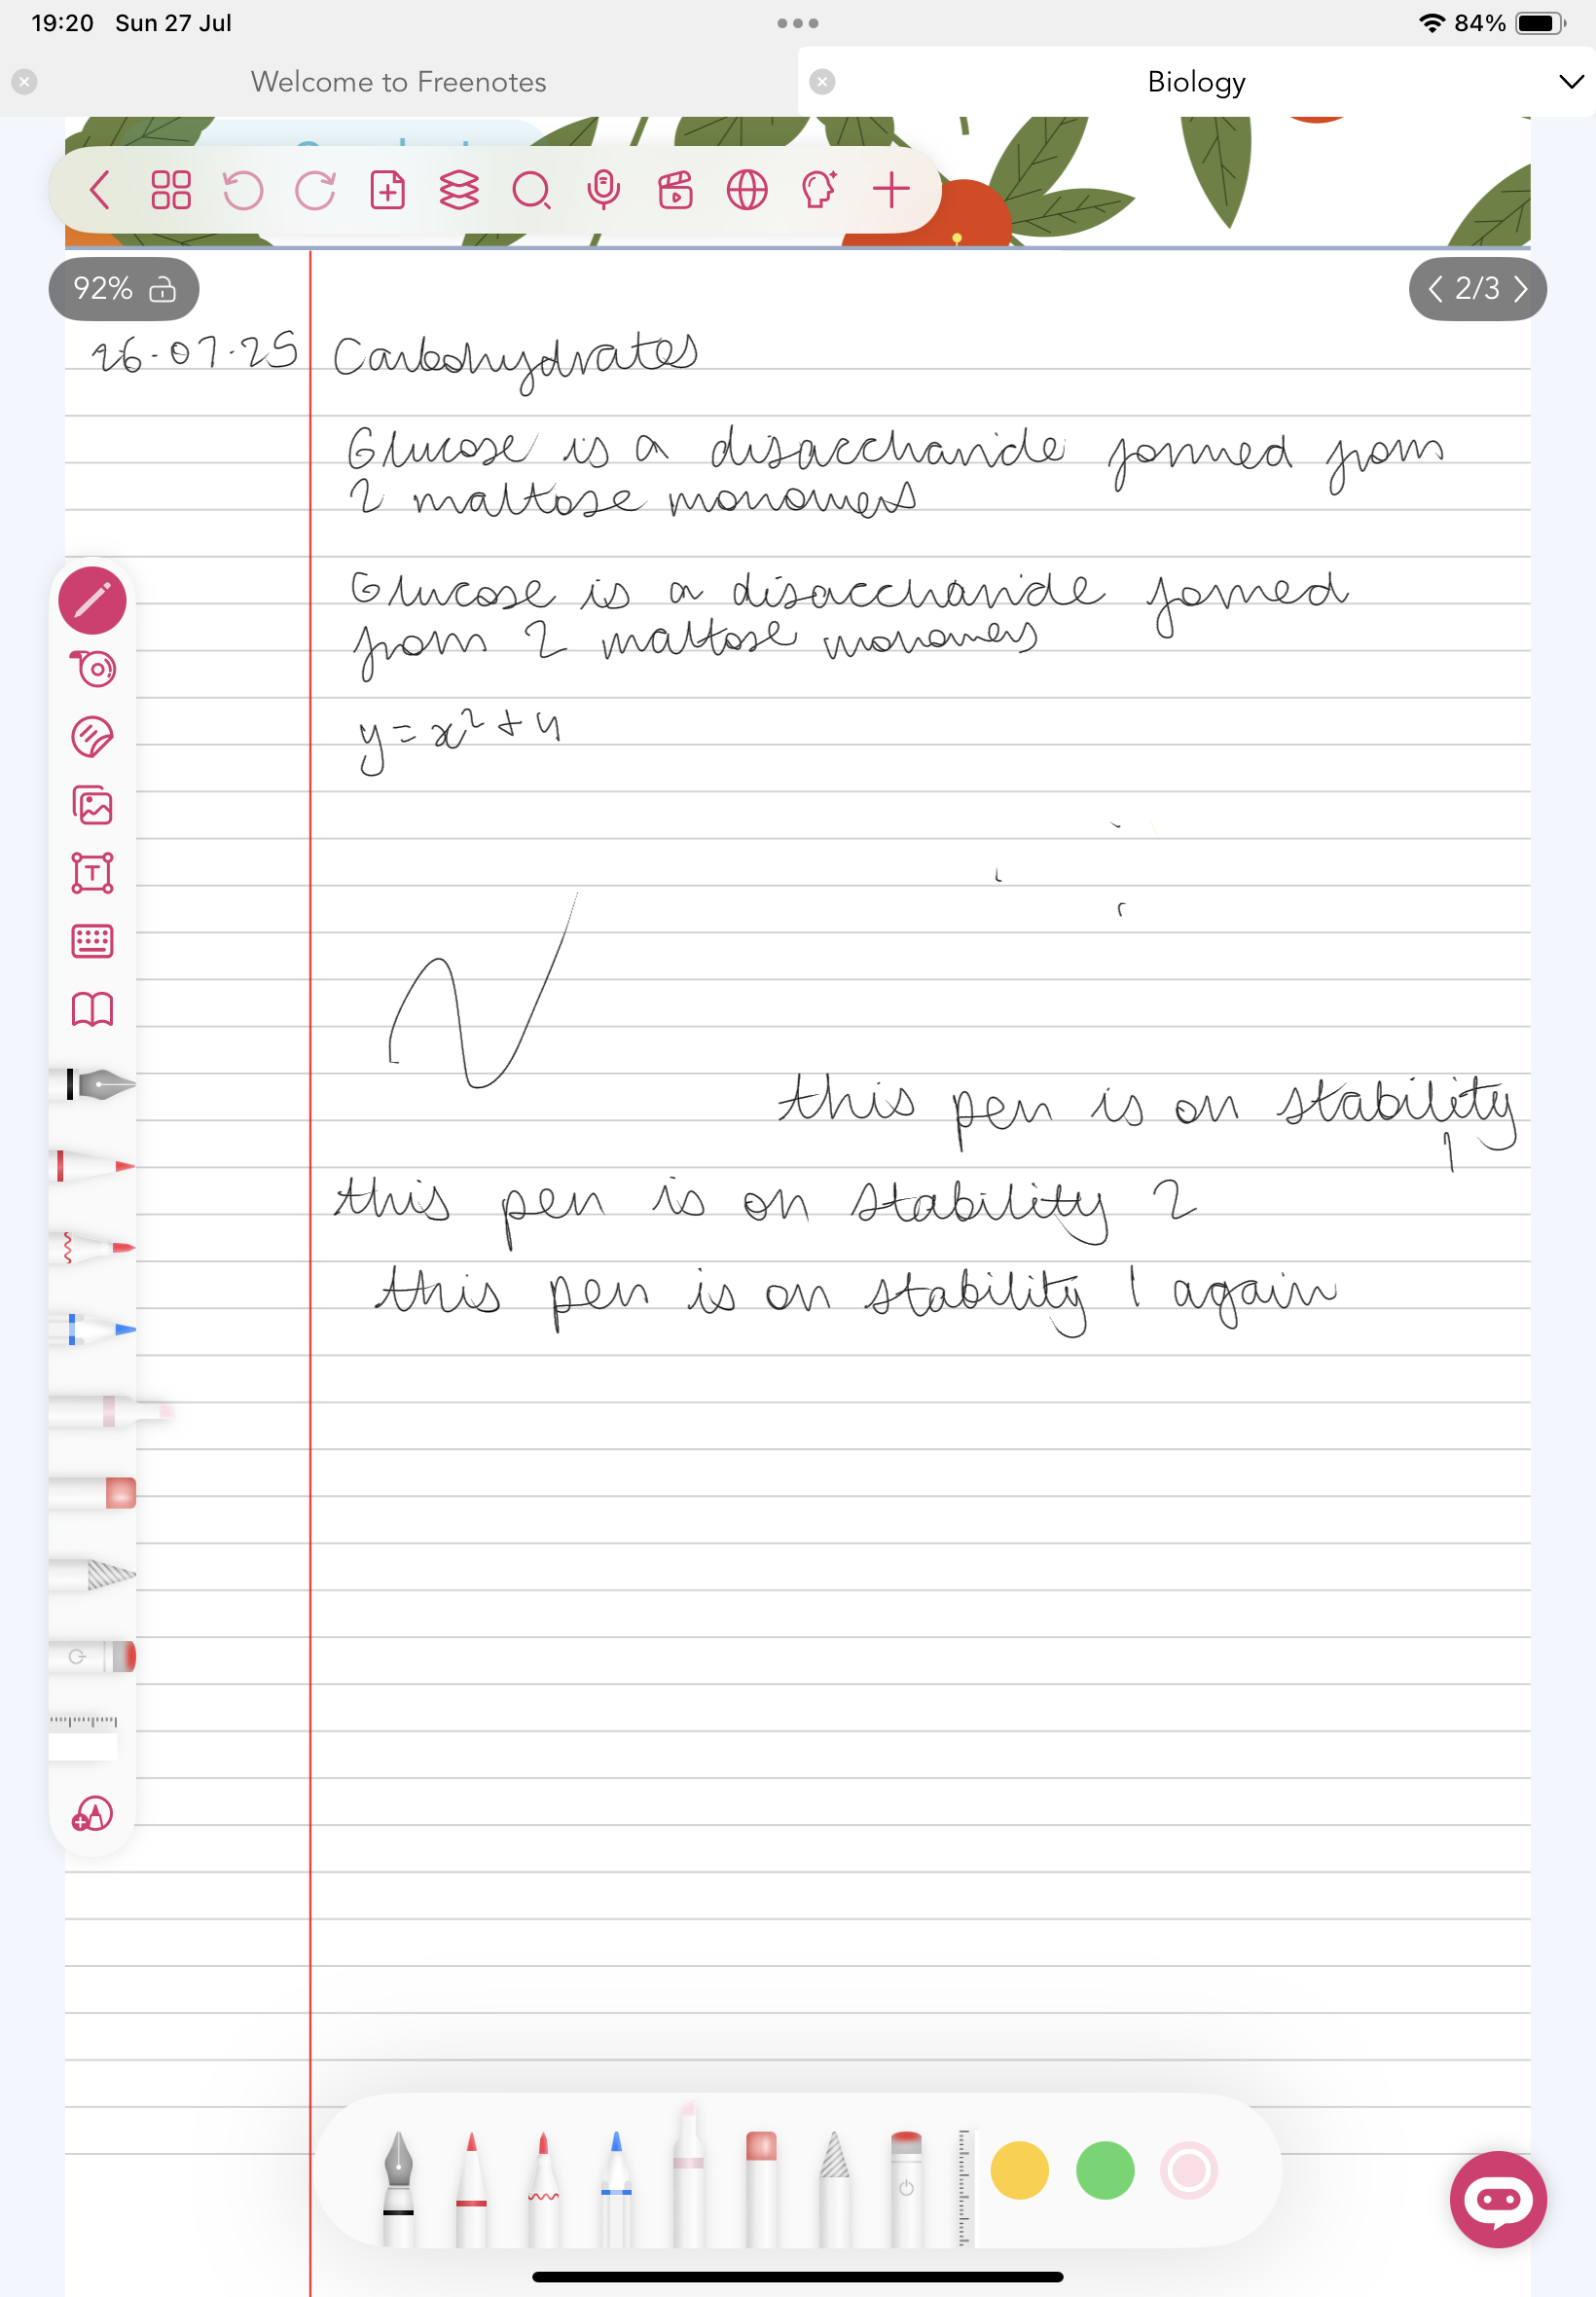 19:20 Sun 27 Jul
84%
Welcome to Freenotes
Biology
92%
2/3
26.07.25 Carbohydrates
Glucose is a disaccharide formed from
2 maltose monomers
Glucose is a disaccharide formed
from 2 maltose monomers
y = x² + 4
this pen is on stability
1
this pen is on stability 2
this pen is on stability 1 again